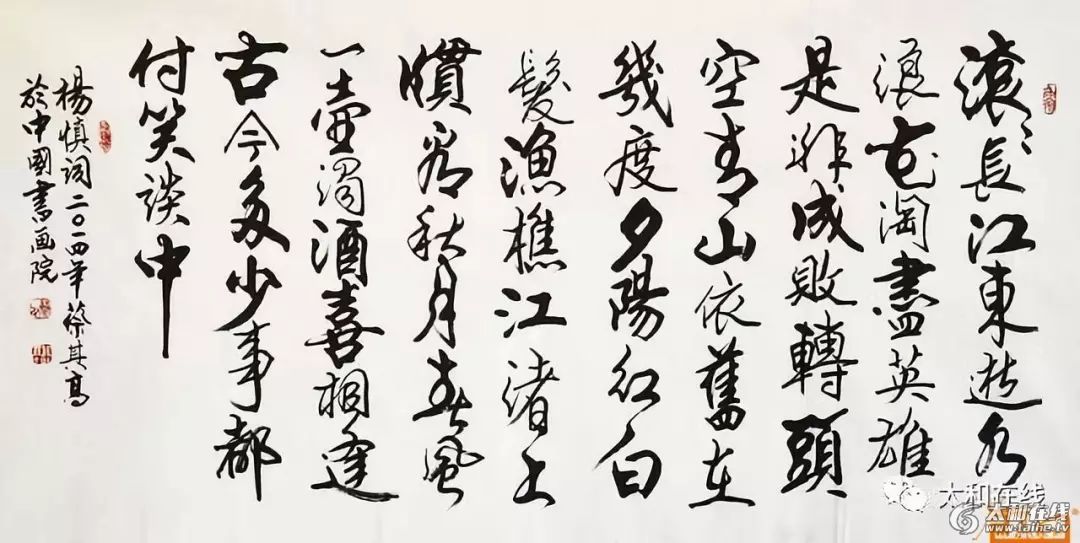 滾〻長江東逝水
浪花淘盡英雄
是非成敗轉頭
空青山依舊在
幾度夕陽紅白
髮漁樵江渚上
慣看秋月春風
一壺濁酒喜相逢
古今多少事都
付笑談中
楊慎詞二〇一四年蔡其高
於中國書画院
太和在线
太和在线
www.taihe.tv